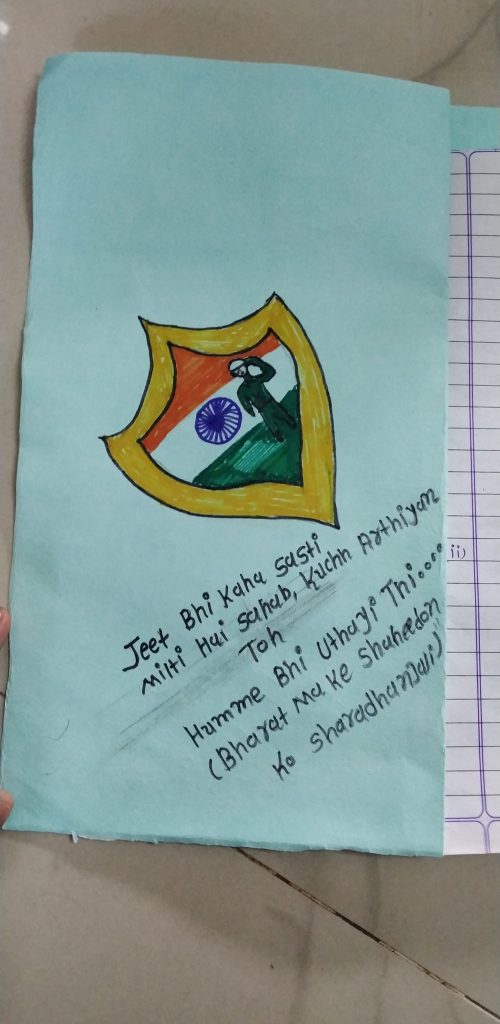 Jeet Bhi Kaha sasti
milti Hai sahab, Kuchh Arthiyan
Toh
Humme Bhi Uthayi Thi....
(Bharat Ma Ke Shaheedon
Ko Sharadhanjali)
ii)